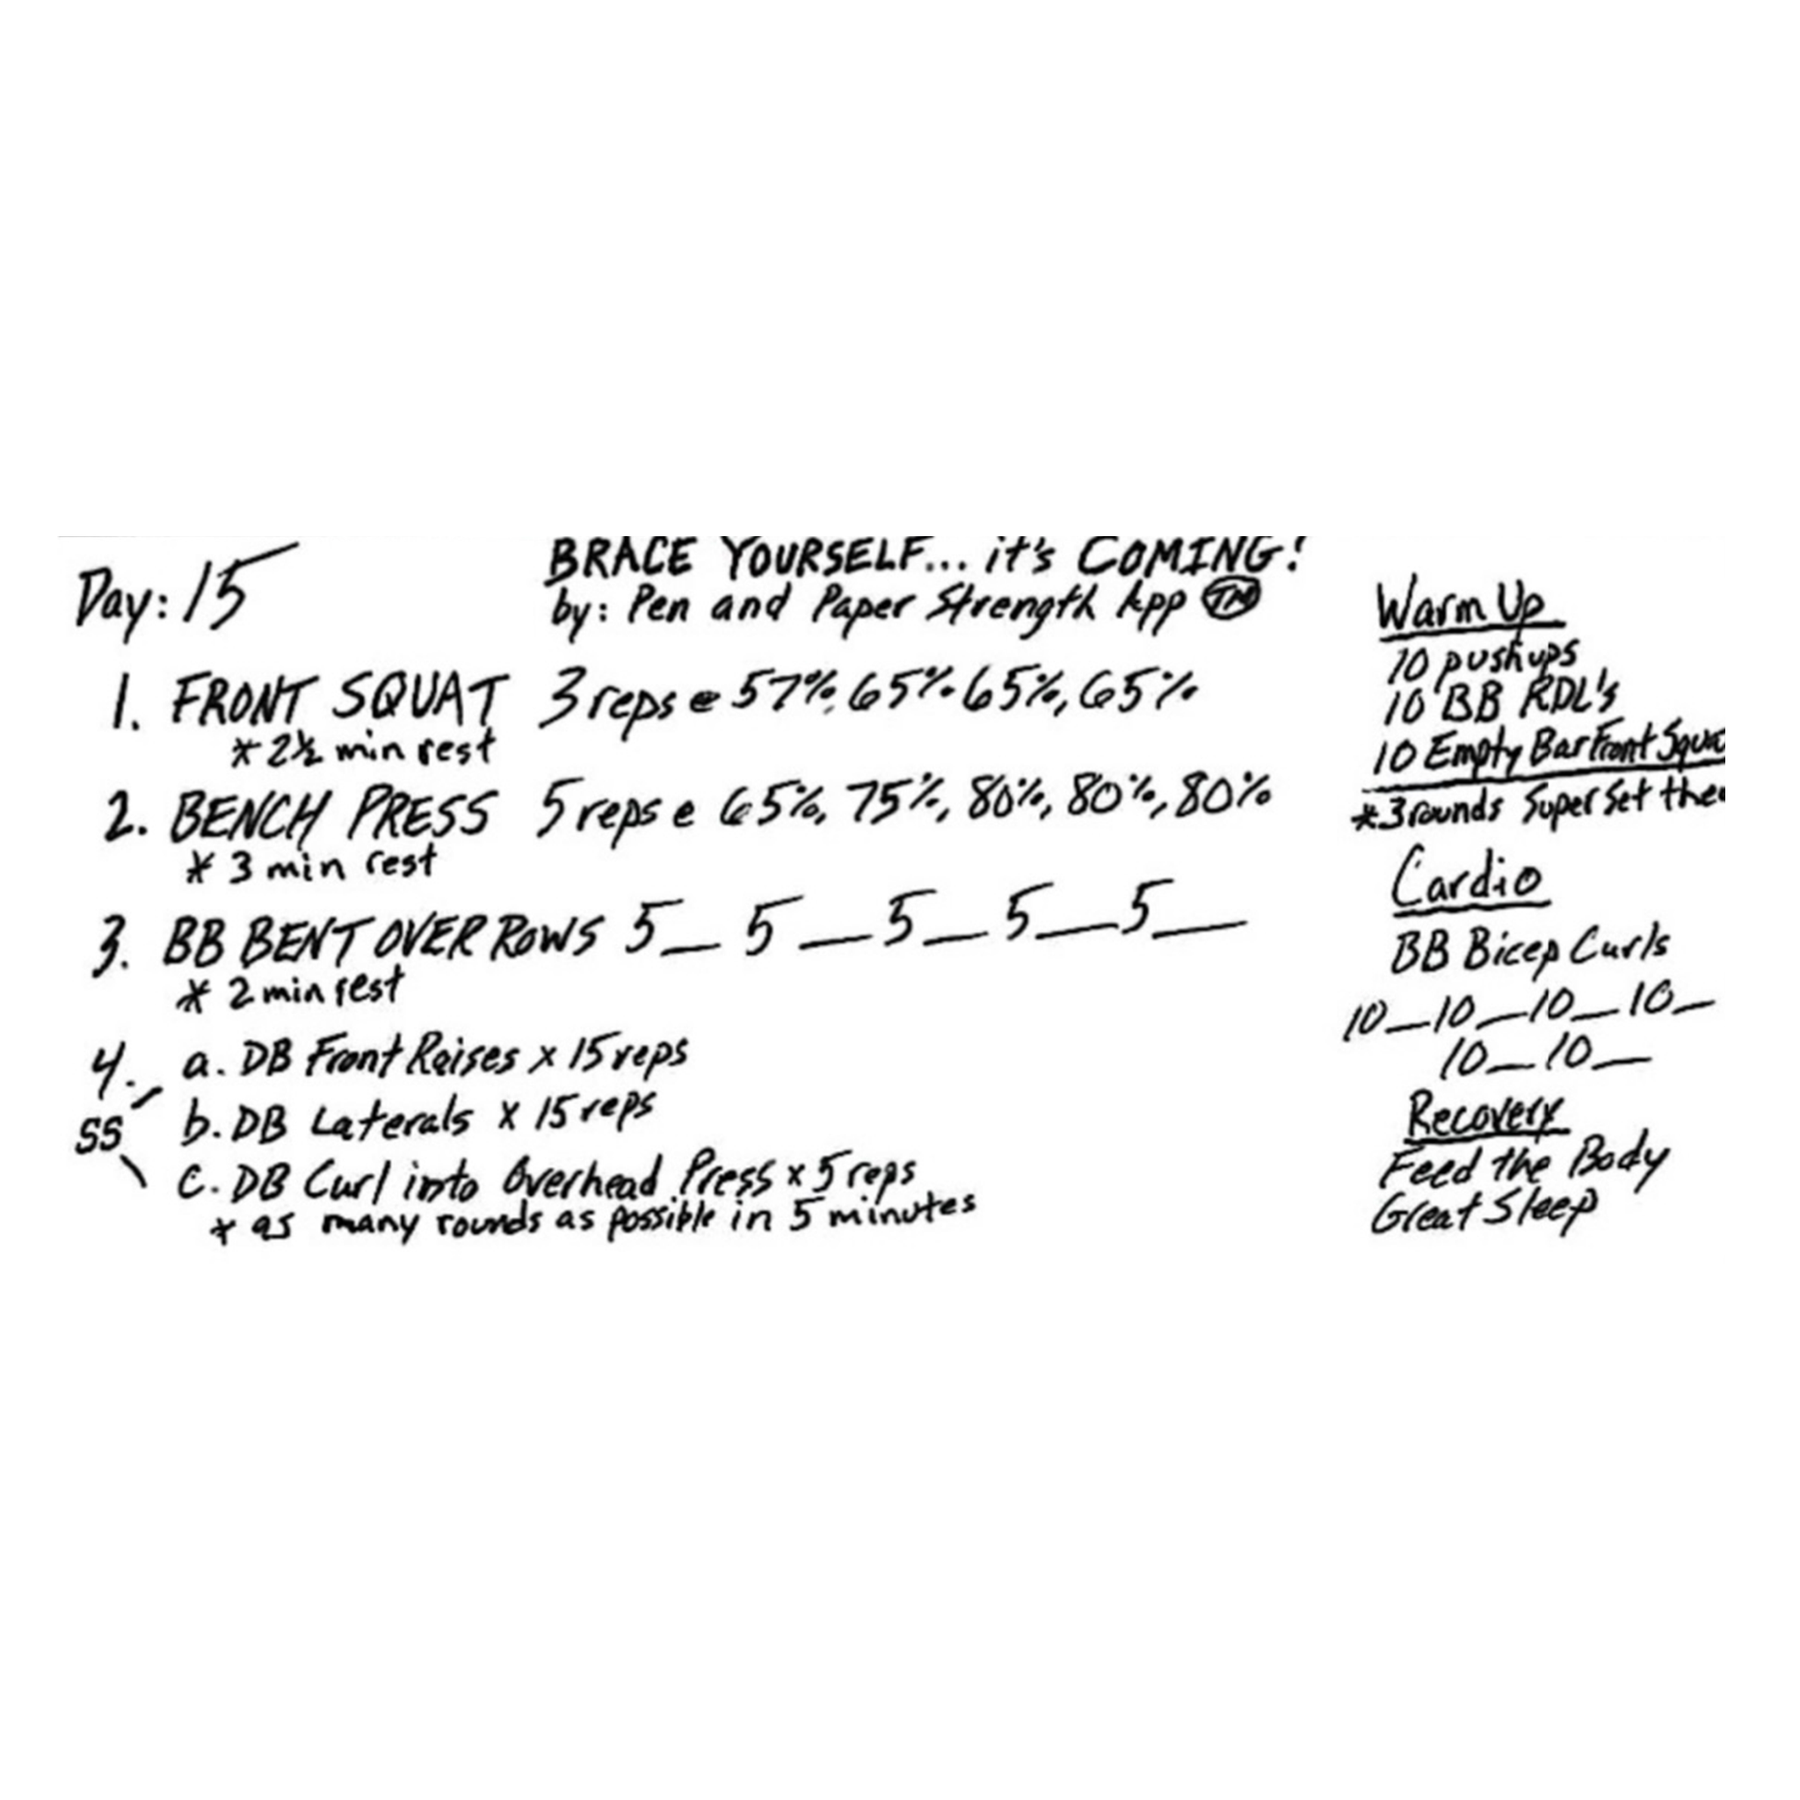 Day: 15
BRACE YOURSELF... it's COMING!
by: Pen and Paper Strength App TM
1. FRONT SQUAT 3 reps @ 57%, 65% 65%, 65%
* 2½ min rest
2. BENCH PRESS 5 reps @ 65%, 75%, 80%, 80%, 80%
* 3 min rest
3. BB BENT OVER ROWS 5_ 5_ 5_ 5_ 5_
* 2 min rest
4. a. DB Front Raises x 15 reps
SS b. DB Laterals x 15 reps
c. DB Curl into Overhead Press x 5 reps
* as many rounds as possible in 5 minutes
Warm Up
10 pushups
10 BB RDL's
10 Empty Bar Front Squa
*3 rounds Super Set the
Cardio
BB Bicep Curls
10_10_10_10_
10_10_
Recovery
Feed the Body
Great Sleep